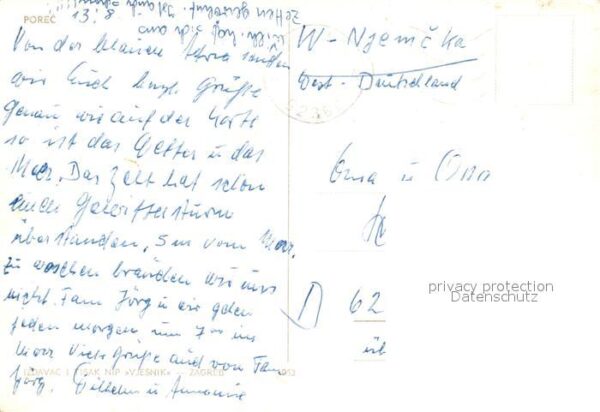 POREČ
13.8
Von der blauen Adria senden
wir Euch herzl. Grüße
genau wie auf der Karte
so ist das Wetter u das
Meer. Das Zelt hat schon
einen Gewittersturm
überstanden, 5 m vom Meer.
zu waschen brauchen wir uns
nicht. Fam Jörg u wir gehen
jeden morgen um 7 ins
Meer Viele Grüße auch von Fam
Jörg. Wilhelm u
IZDAVAČ I TISAK NIP »VJESNIK« — ZAGREB
W-Njemčka
West-Deutschland
Oma u Opa
D 62
privacy protection
Datenschutz